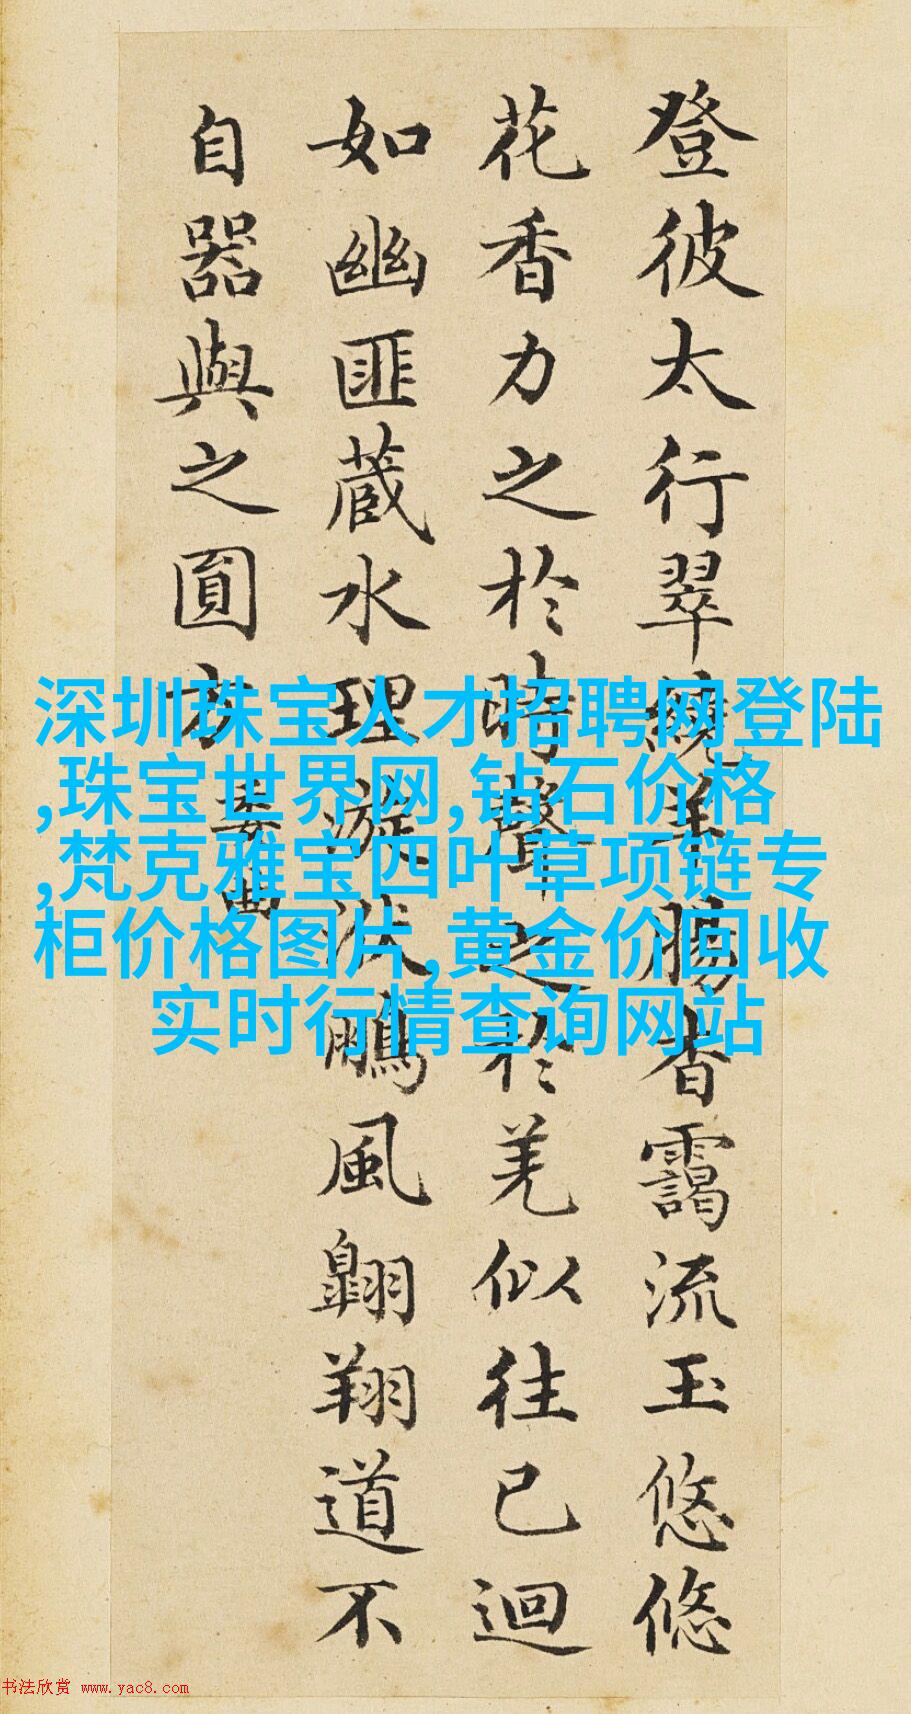 登彼太行翠繞羊腸杳靄流玉悠悠
花香力之於時聲之於羌似往已迴
如幽匪藏水理漩洑鵬風翺翔道不
自器與之圓方
委曲
深圳珠宝人才招聘网登陆
,珠宝世界网,钻石价格
,梵克雅宝四叶草项链专
柜价格图片,黄金价回收
实时行情查询网站
书法欣赏 www.yac8.com